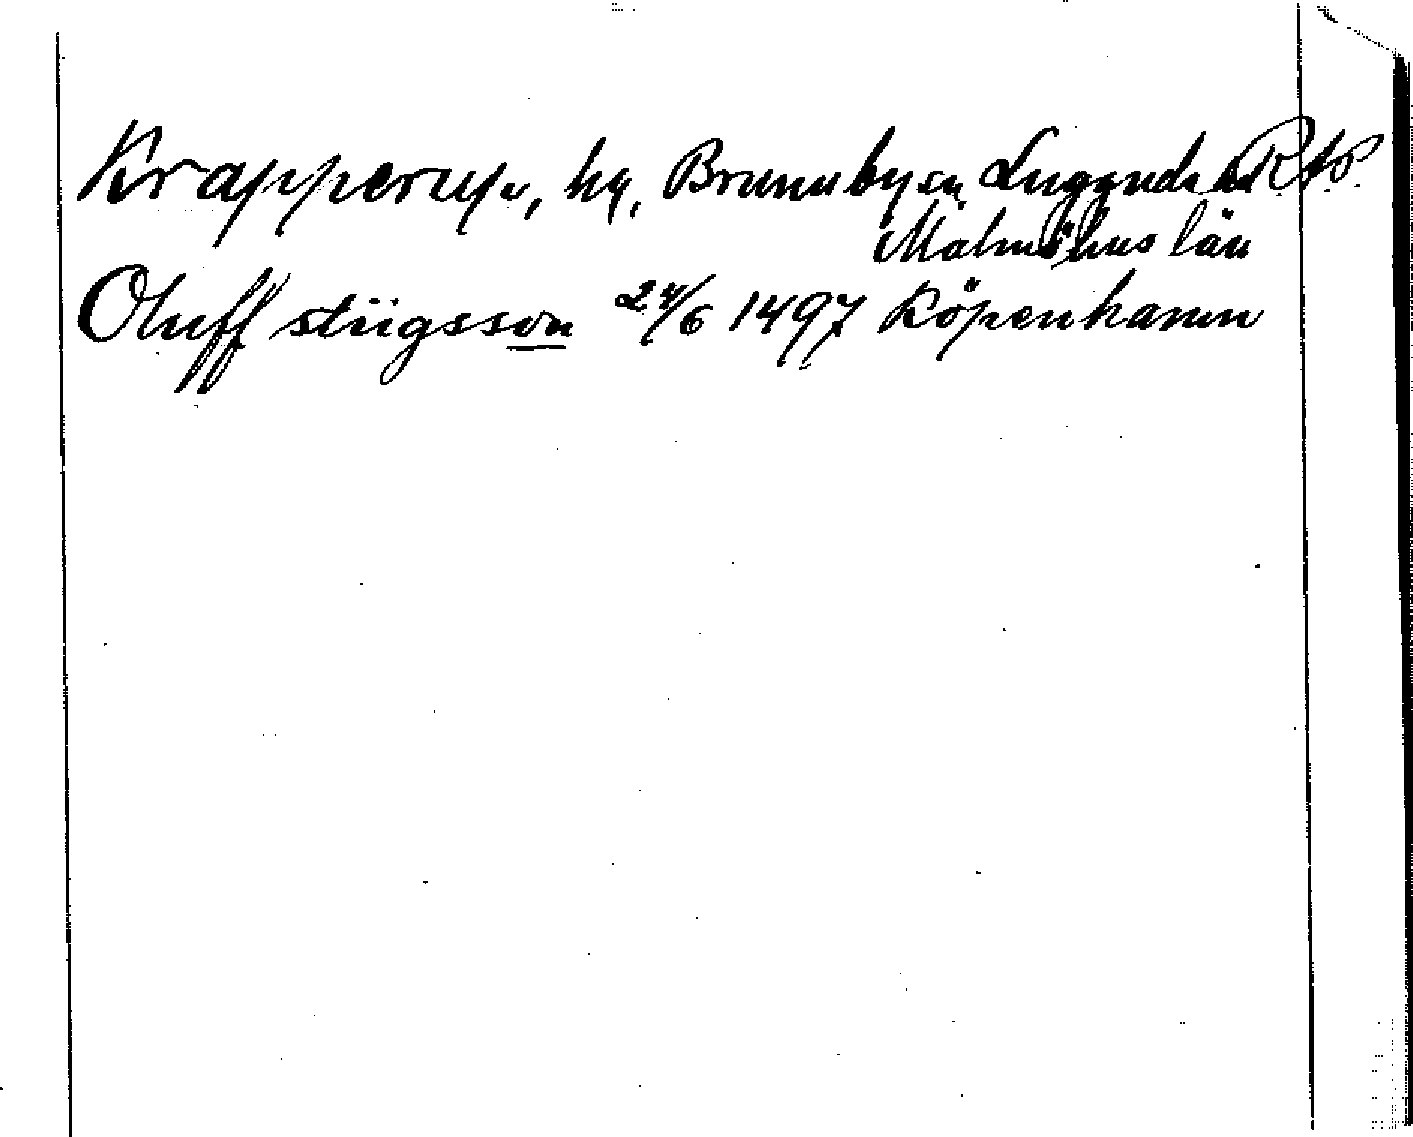 Krapperup, hg, Brunnby sn Luggude hd RAP
Malmöhus län
Oluff stiigsson 24/6 1497 Köpenhamn